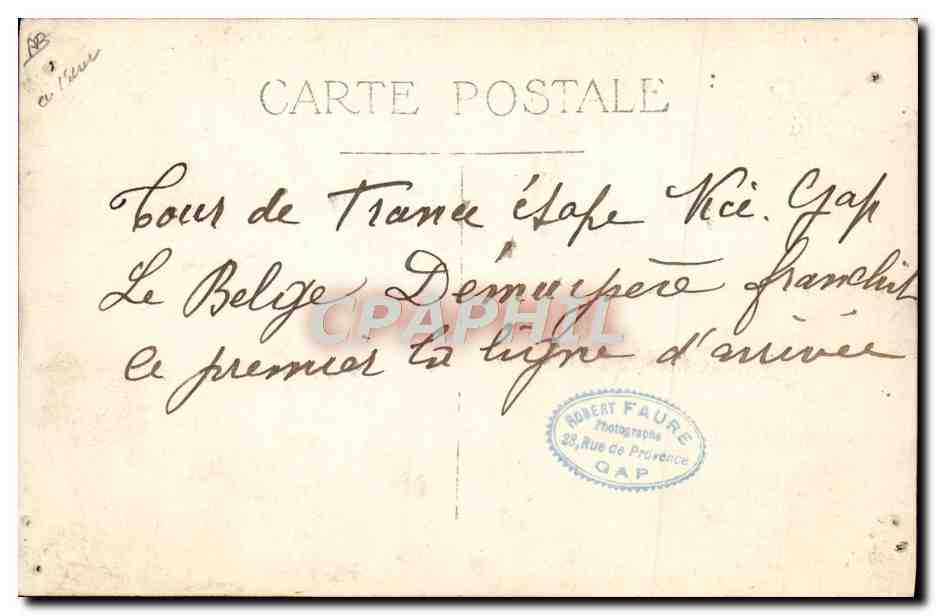 AB
CARTE POSTALE
Tour de France étape Nice. Gap
Le Belge Démuypère franchit
le premier la ligne d'arrivée
CPAPHIL
ROBERT FAURE
Photographe
28, Rue de Provence
GAP